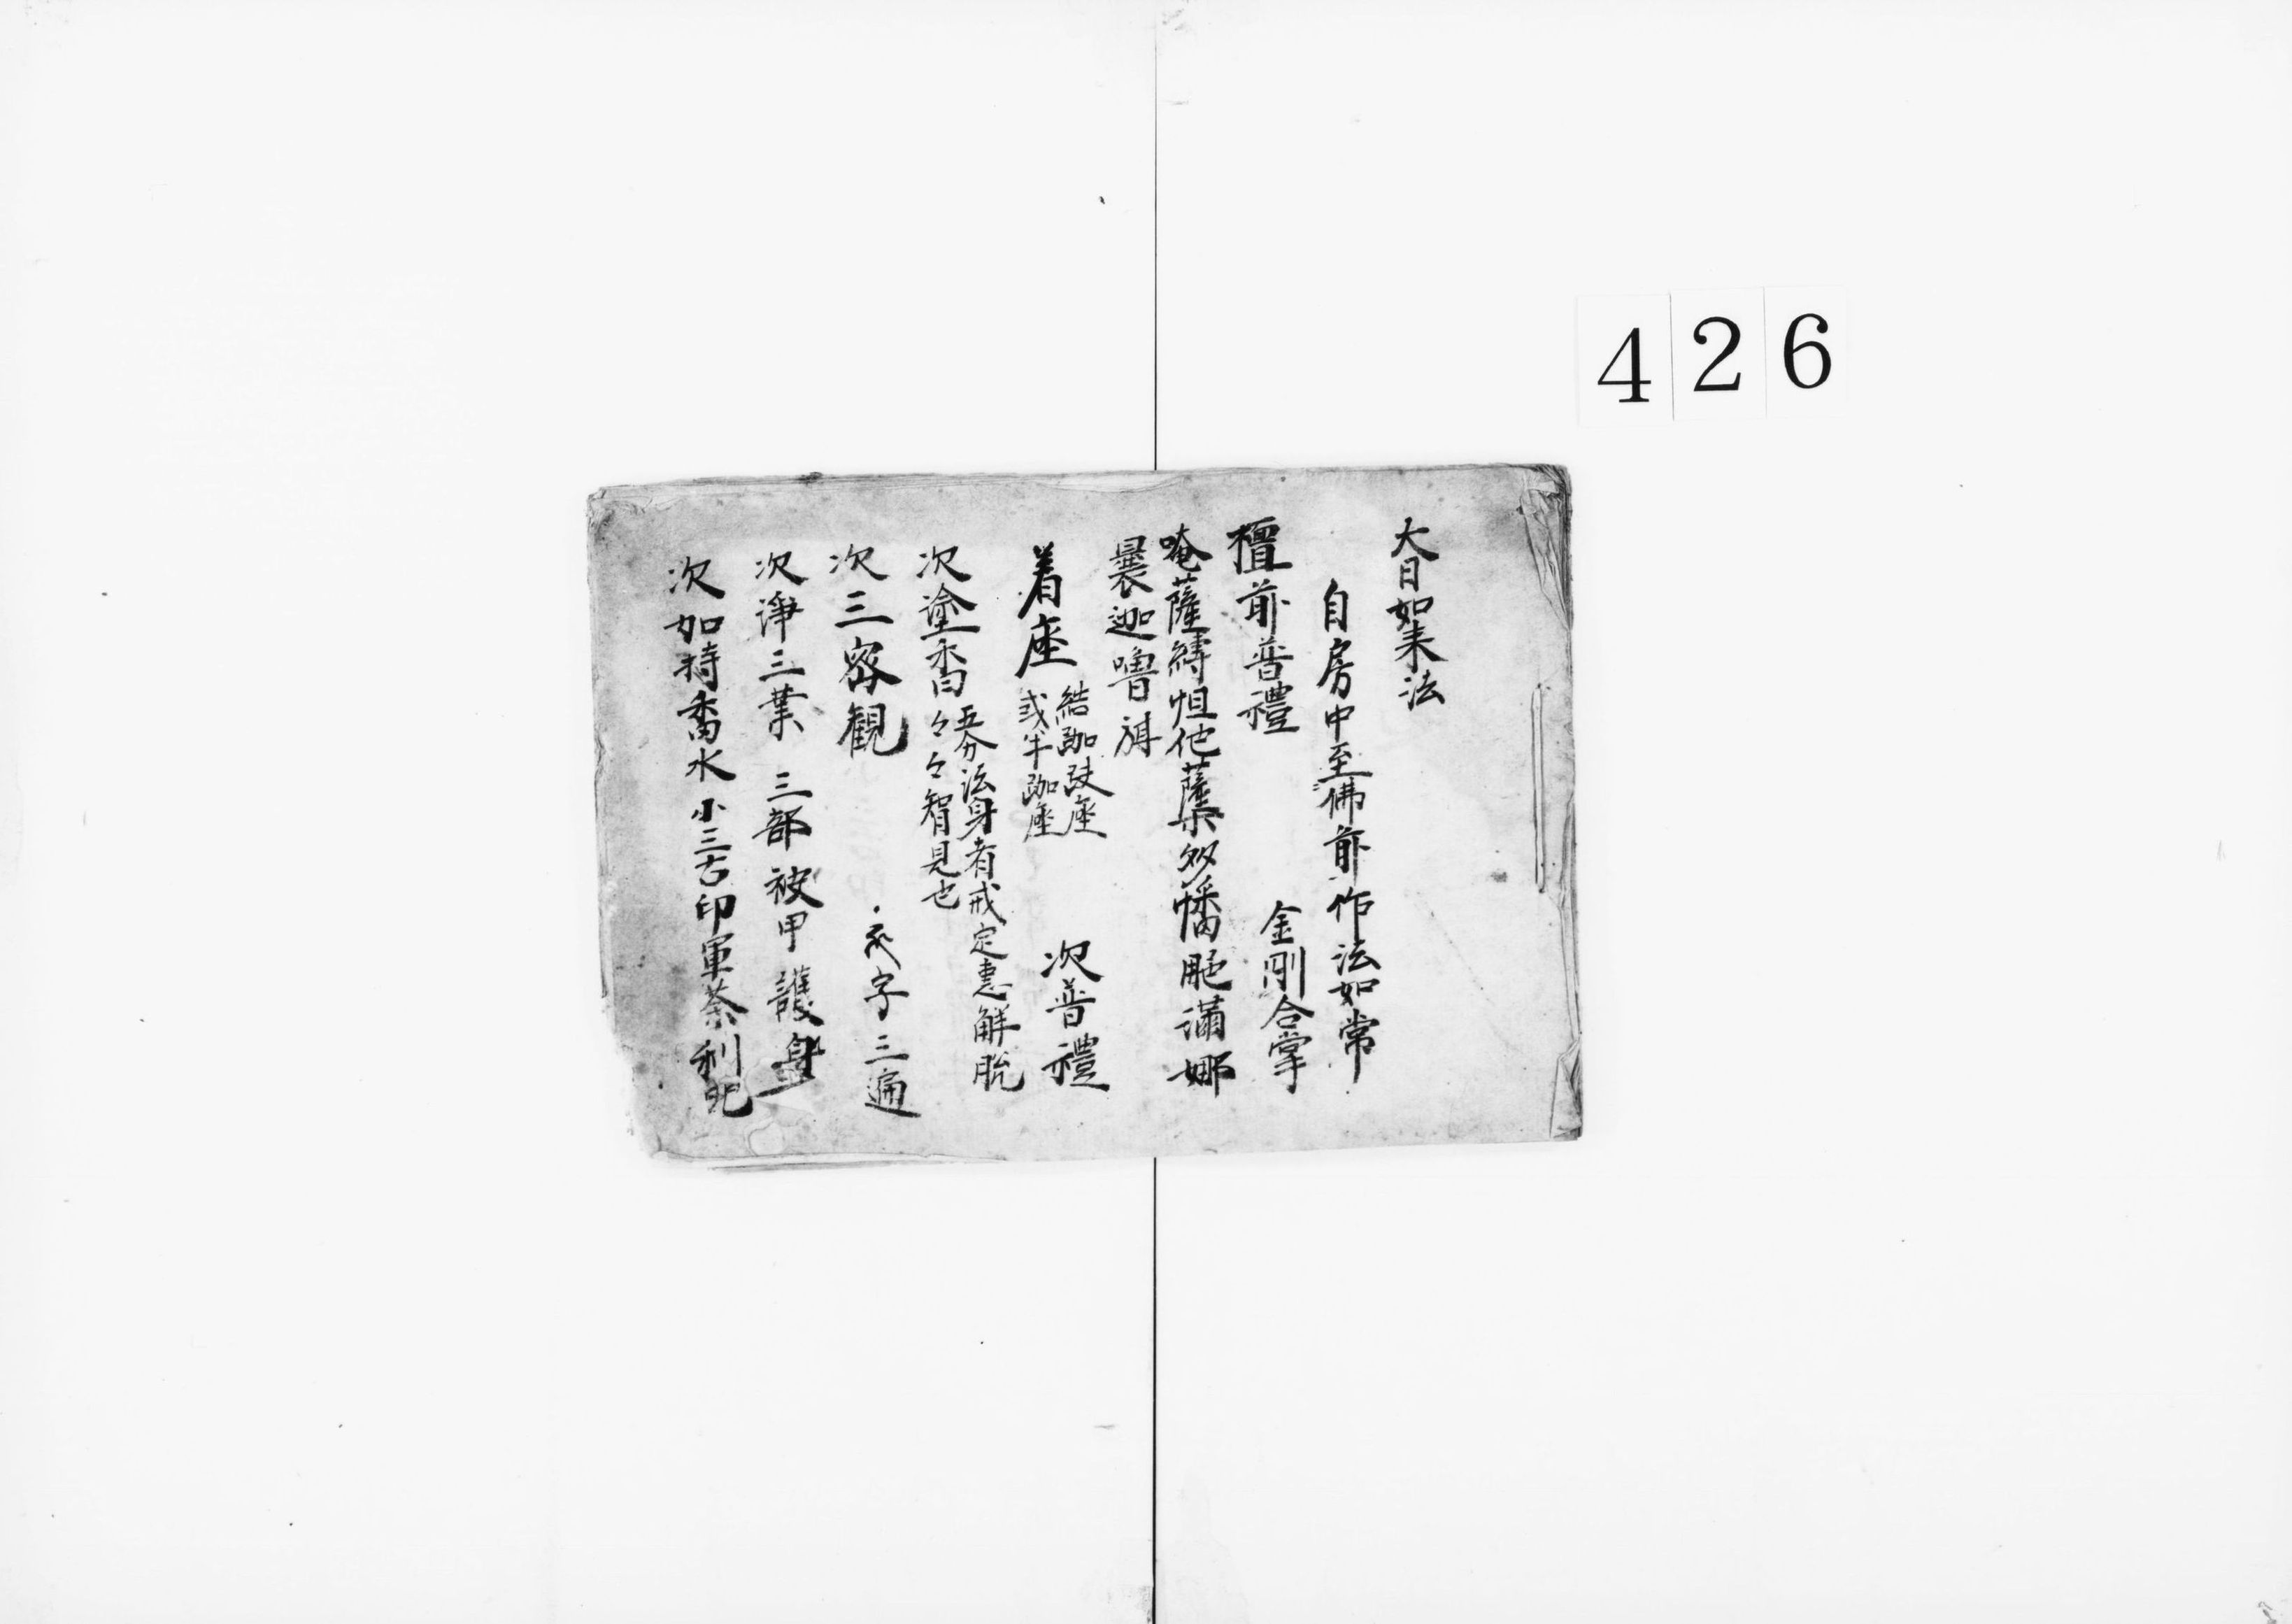 426
大日如来法
自房中至佛前作法如常
檀前普禮 金剛合掌
唵薩縛怛他蘖多幡那滿娜
曩迦嚕弭
着座 結跏趺座 次普禮
或半跏座
次塗香 五分法身者戒定恵解脱
々々智見也
次三密観 字三遍
次浄三業 三部 被甲護身
次加持香水 小三古印軍荼利呪